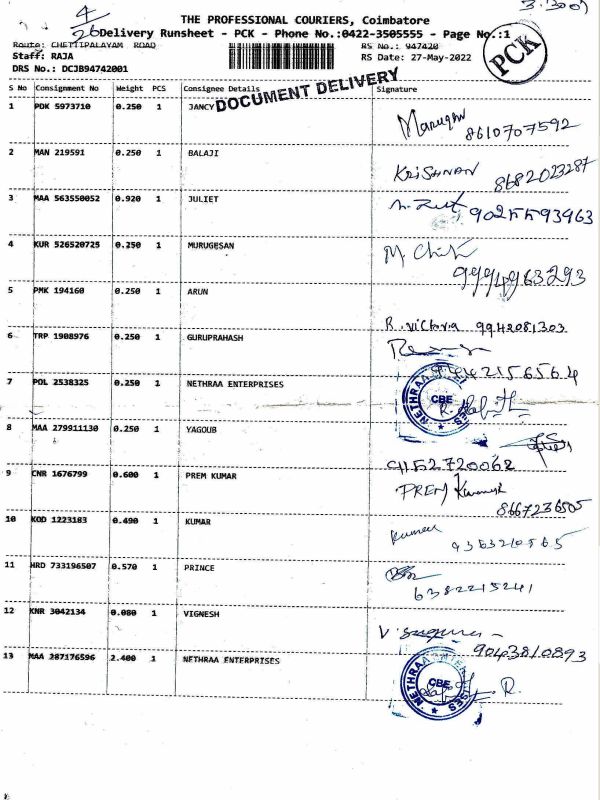 4/26
3.30
THE PROFESSIONAL COURIERS, Coimbatore
Delivery Runsheet - PCK - Phone No.:0422-3505555 - Page No.:1
Route: CHETTIPALAYAM ROAD
RS No.: 947420
Staff: RAJA
RS Date: 27-May-2022
DRS No.: DCJB94742001
PCK
DOCUMENT DELIVERY
S No Consignment No Weight PCS Consignee Details Signature
1 PDK 5973710 0.250 1 JANCY
8610707592
2 MAN 219591 0.250 1 BALAJI
KRISHNAN 8682023287
3 MAA 563550052 0.920 1 JULIET
9025593963
4 KUR 526520725 0.250 1 MURUGESAN
9994963293
5 PMK 194160 0.250 1 ARUN
R. Victoria 9942081303
6 TRP 1908976 0.250 1 GURUPRAHASH
9442156564
7 POL 2538325 0.250 1 NETHRAA ENTERPRISES
NETHRAA ENTERPRISES CBE
8 MAA 279911130 0.250 1 YAGOUB
9 CNR 1676799 0.600 1 PREM KUMAR
PREM Kumar
8667236505
10 KOD 1223183 0.490 1 KUMAR
Kumar 9363210565
11 HRD 733196507 0.570 1 PRINCE
6382215241
12 KNR 3042134 0.080 1 VIGNESH
9043810893
13 MAA 287176596 2.400 1 NETHRAA ENTERPRISES
NETHRAA ENTERPRISES CBE
R.